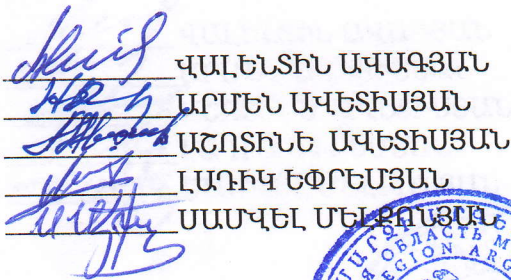 ՎԱԼԵՆՏԻՆ ԱՎԱԳՅԱՆ
ԱՐՄԵՆ ԱՎԵՏԻՍՅԱՆ
ԱՇՈՏԻՆԵ ԱՎԵՏԻՍՅԱՆ
ԼԱԴԻԿ ԵՓՐԵՄՅԱՆ
ՍԱՄՎԵԼ ՄԵԼՔՈՆՅԱՆ
ОБЛАСТЬ
REGION